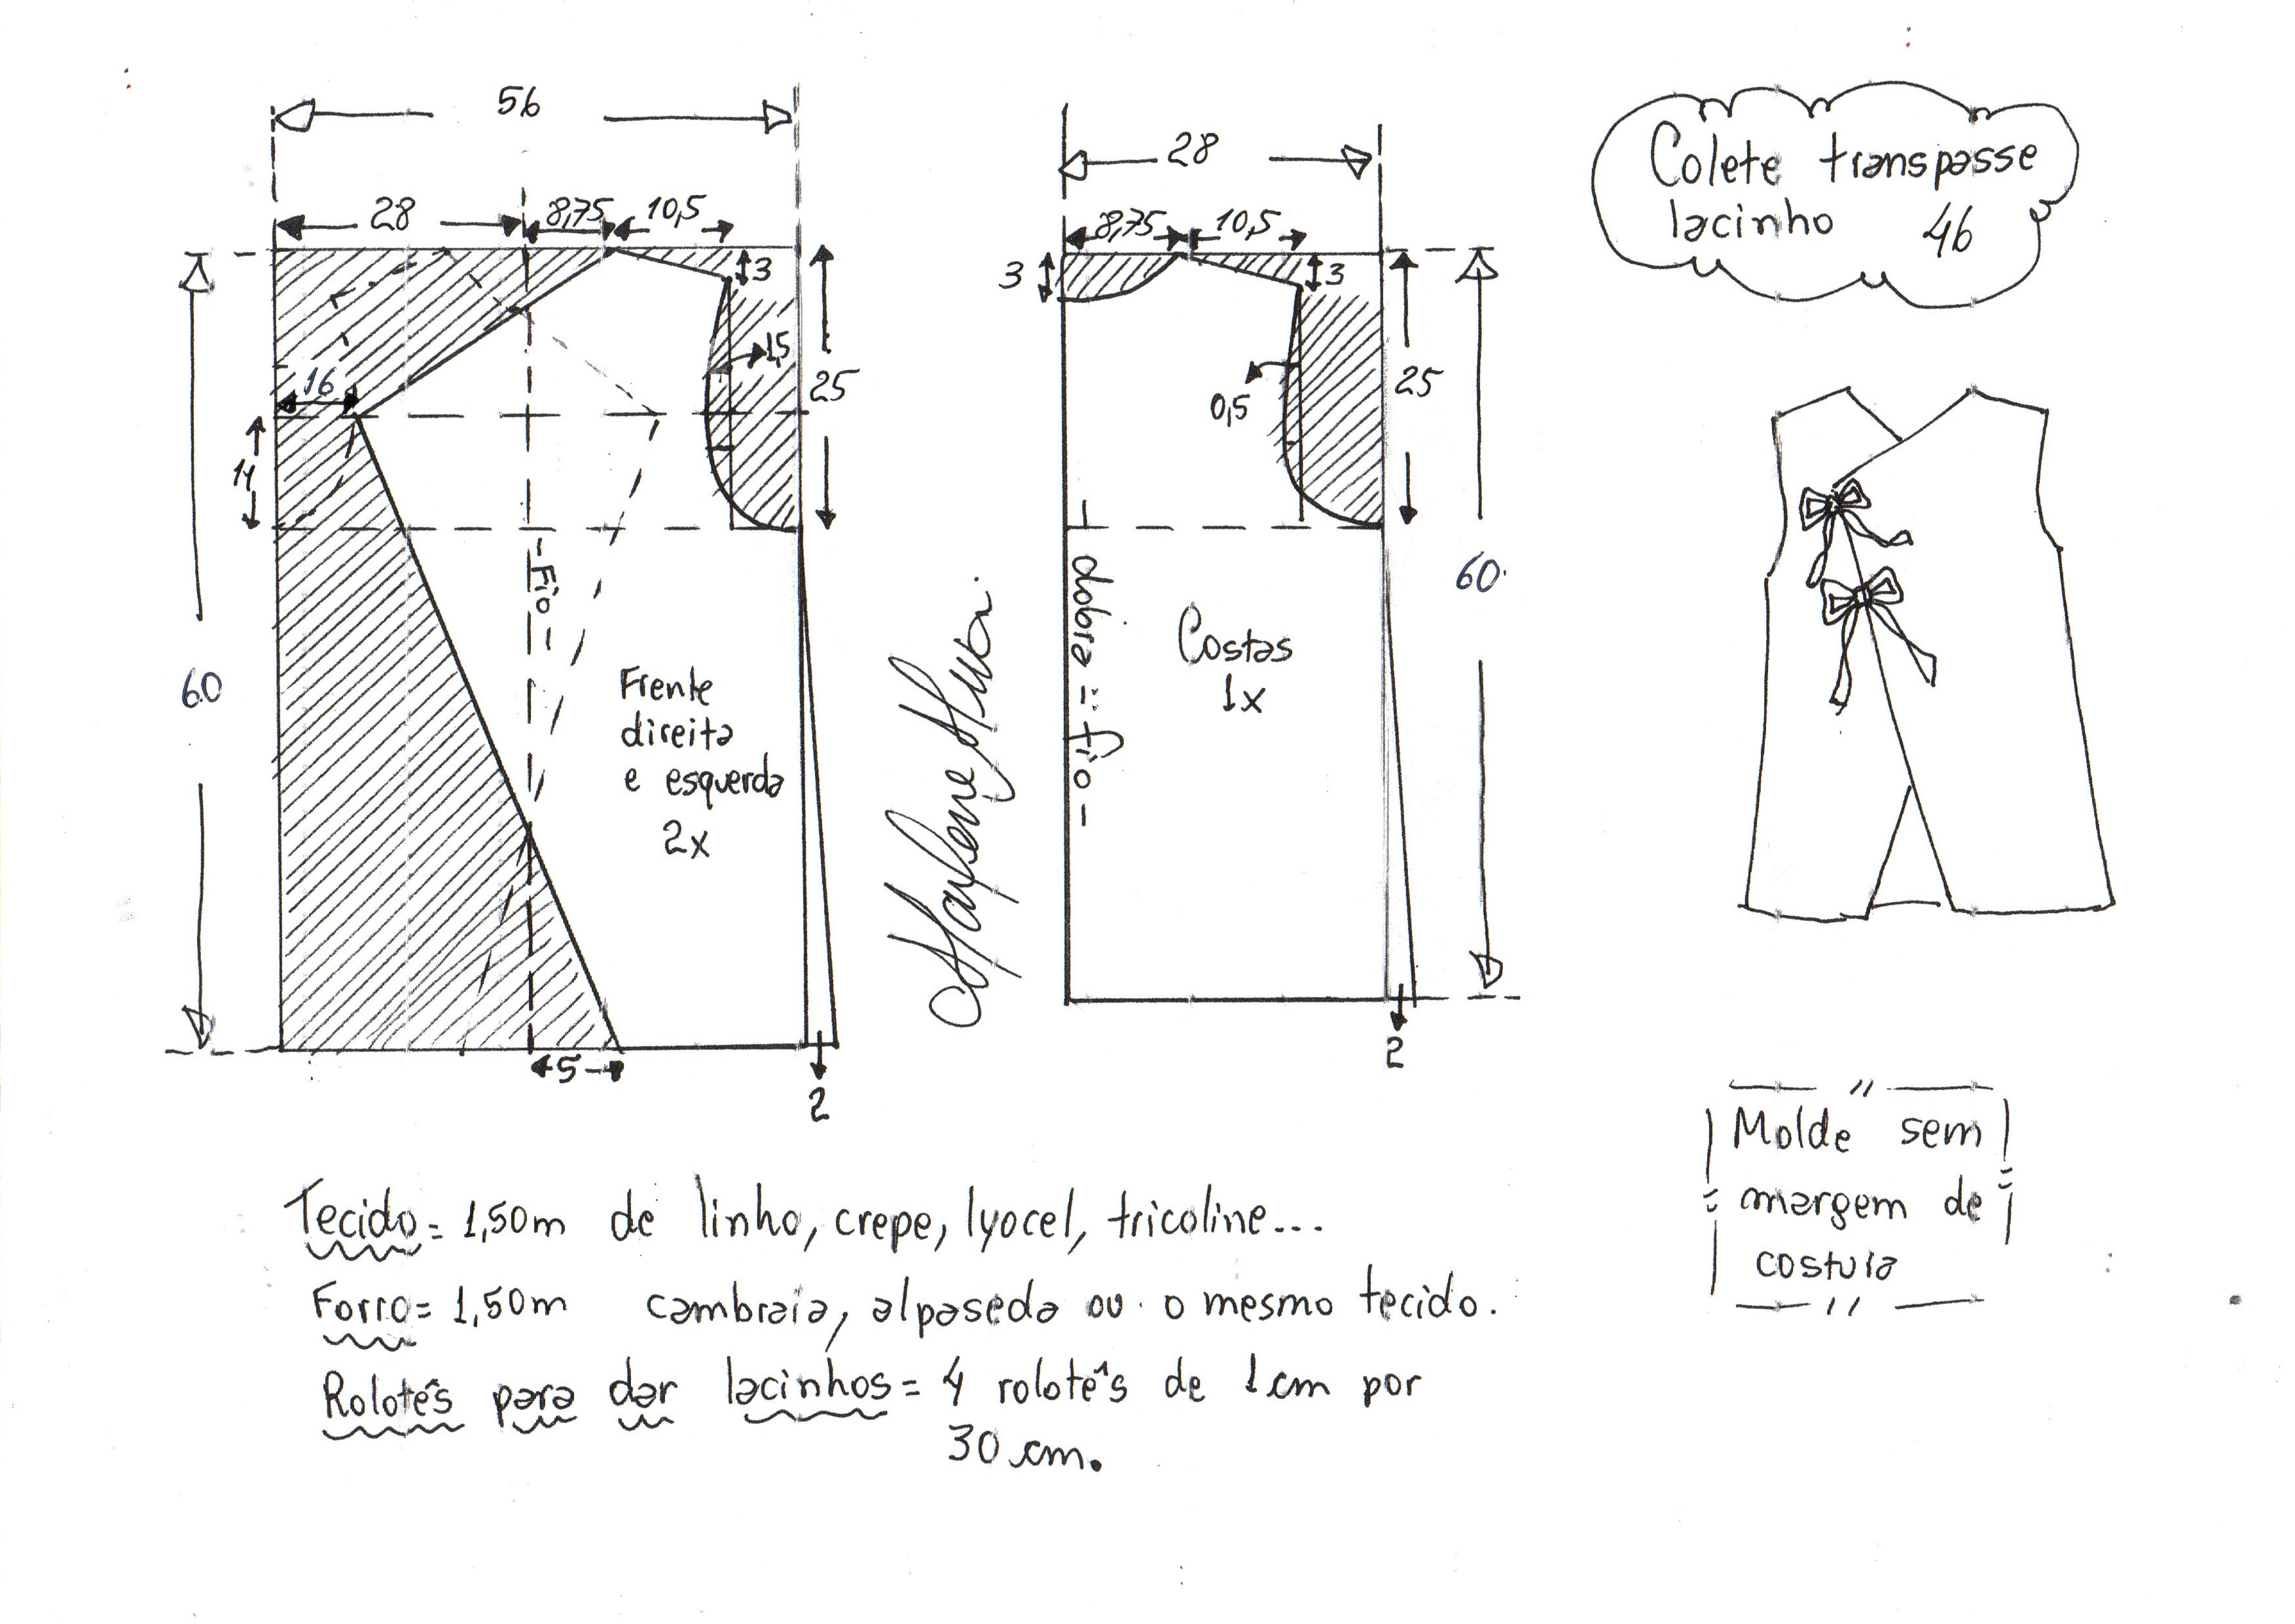 56
28
8,75
10,5
3
1,5
25
16
14
60
- Fio -
Frente
direita
e esquerda
2x
5
2
28
8,75
10,5
3
3
0,5
25
60
dobra = fio -
Costas
1x
2
Colete transpasse
lacinho 46
Molde sem
margem de
costura
Tecido = 1,50m de linho, crepe, lyocel, tricoline...
Forro = 1,50m cambraia, alpaseda ou o mesmo tecido.
Rolotês para dar lacinhos = 4 rolotês de 1cm por
30 cm.